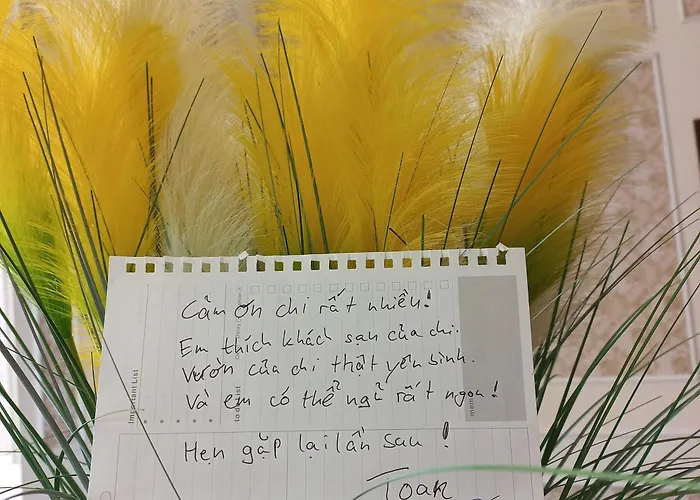 Cảm ơn chi rất nhiều!
Em thích khách sạn của chi.
Vườn của chi thật yên bình.
Và em có thể ngủ rất ngon!
Hẹn gặp lại lần sau!
Toan
Important List
to do list
memo